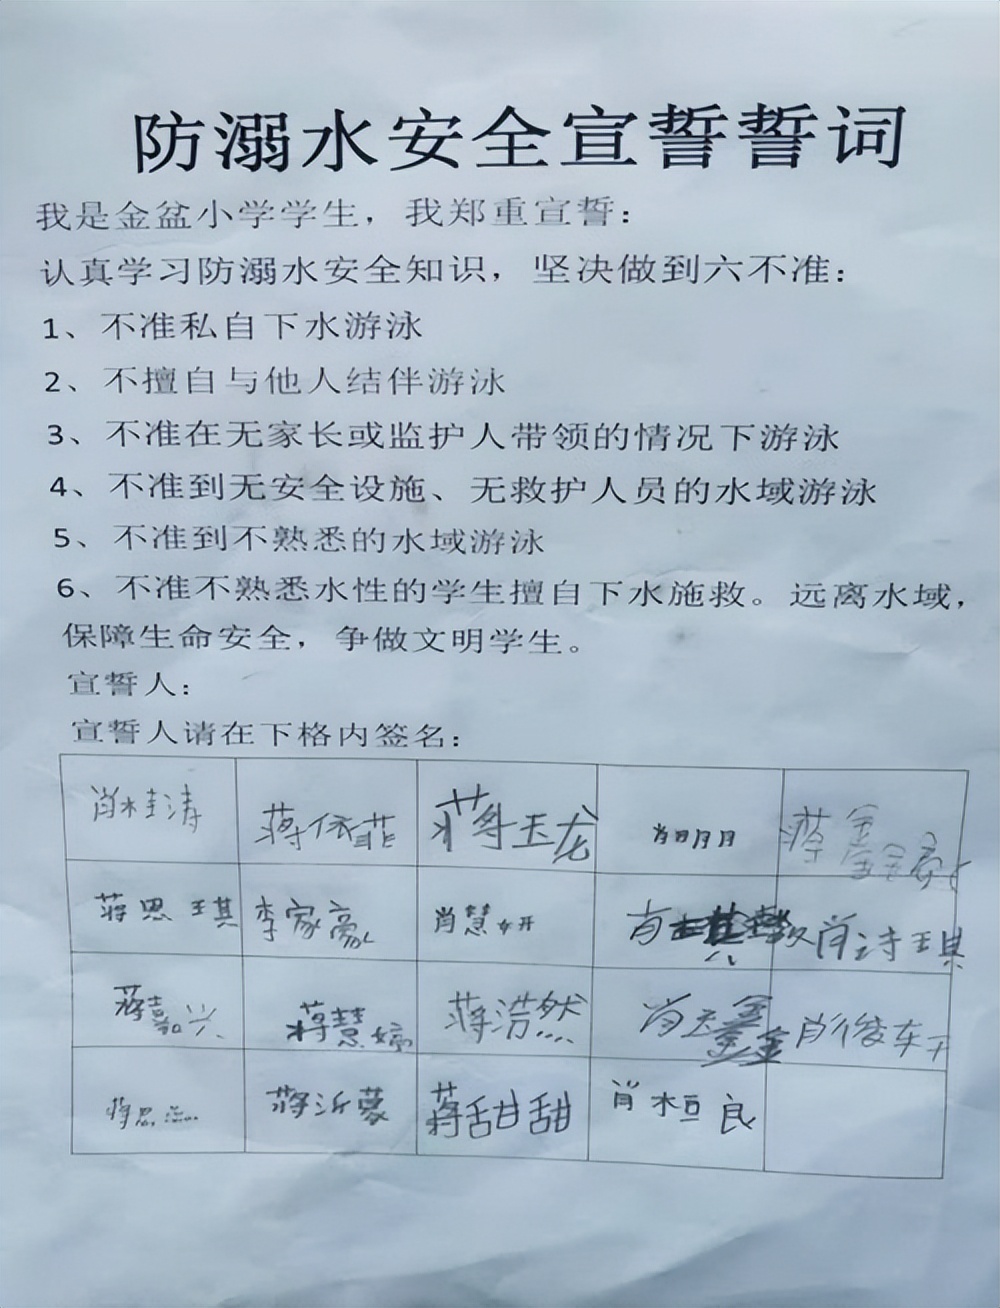 防溺水安全宣誓誓词
我是金盆小学学生，我郑重宣誓：
认真学习防溺水安全知识，坚决做到六不准：
1、不准私自下水游泳
2、不擅自与他人结伴游泳
3、不准在无家长或监护人带领的情况下游泳
4、不准到无安全设施、无救护人员的水域游泳
5、不准到不熟悉的水域游泳
6、不准不熟悉水性的学生擅自下水施救。远离水域，
保障生命安全，争做文明学生。
宣誓人：
宣誓人请在下格内签名：
肖桂涛 蒋依菲 蒋玉龙 肖明月 蒋鑫豪
蒋思琪 李家豪 肖慧妍 肖 肖诗琪
蒋嘉兴 蒋慧婷 蒋浩然 肖天鑫 肖俊轩
蒋思 蒋沂蒙 蒋甜甜 肖桓良